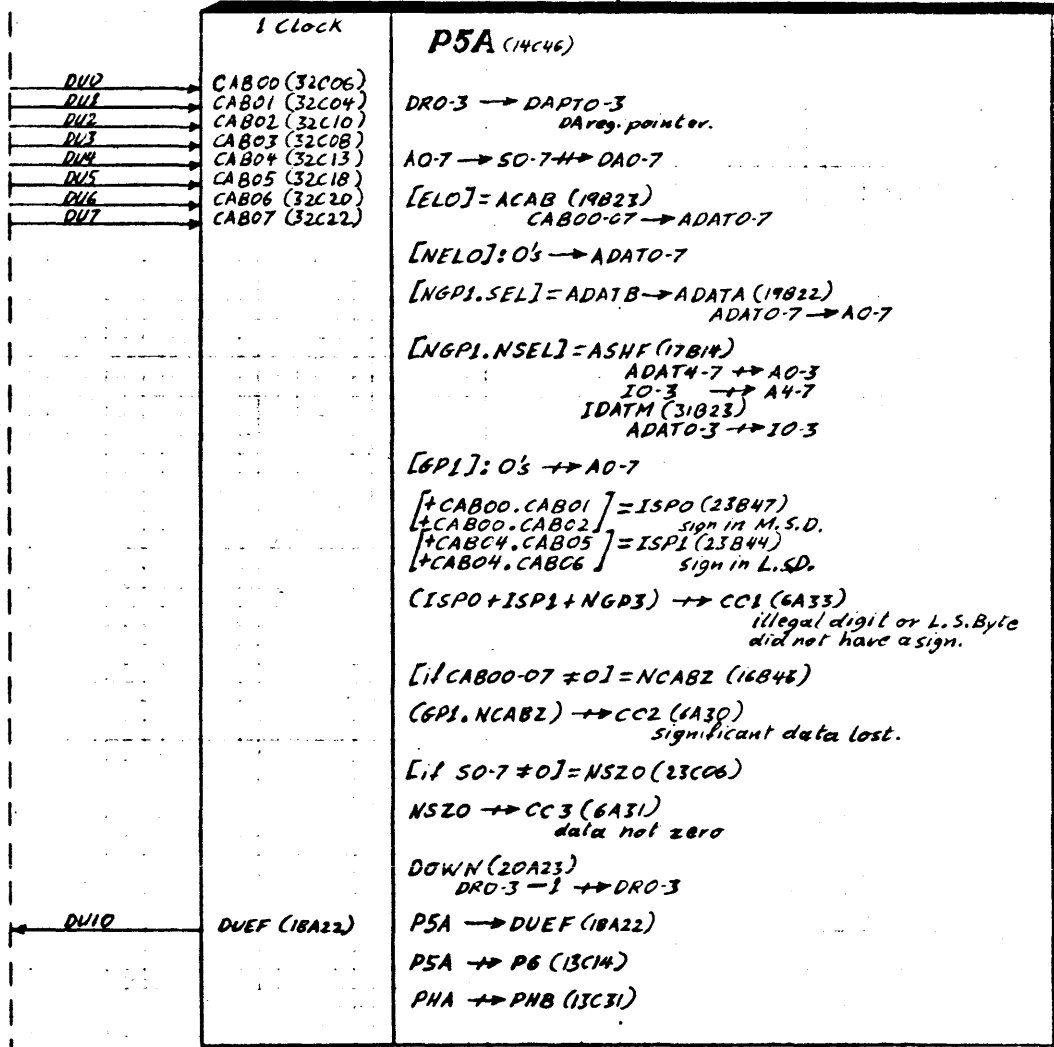 1 Clock
P5A (14C46)
DU0 CAB00 (32C06)
DU1 CAB01 (32C04)
DU2 CAB02 (32C10)
DU3 CAB03 (32C08)
DU4 CAB04 (32C13)
DU5 CAB05 (32C18)
DU6 CAB06 (32C20)
DU7 CAB07 (32C22)
DR0-3 → DAPT0-3
DA reg. pointer.
A0-7 → S0-7 ↛ DA0-7
[ELO] = ACAB (19B23)
CAB00-07 → ADAT0-7
[NELO]: 0's → ADAT0-7
[NGP1.SEL] = ADATB → ADATA (19B22)
ADAT0-7 → A0-7
[NGP1.NSEL] = ASHF (17B14)
ADAT4-7 ↛ A0-3
I0-3 ↛ A4-7
IDATM (31B23)
ADAT0-3 ↛ I0-3
[GP1]: 0's ↛ A0-7
[+CAB00.CAB01
+CAB00.CAB02] = ISP0 (23B47)
sign in M.S.D.
[+CAB04.CAB05
+CAB04.CAB06] = ISP1 (23B44)
sign in L.S.D.
(ISP0+ISP1+NGP3) ↛ CC1 (6A33)
illegal digit or L.S.Byte
did not have a sign.
[if CAB00-07 ≠ 0] = NCABZ (16B48)
(GP1.NCABZ) ↛ CC2 (6A30)
significant data lost.
[if S0-7 ≠ 0] = NSZ0 (23C06)
NSZ0 ↛ CC3 (6A31)
data not zero
DOWN (20A23)
DR0-3 -1 ↛ DR0-3
DU10 DUEF (18A22) P5A → DUEF (18A22)
P5A ↛ P6 (13C14)
PHA ↛ PHB (13C31)